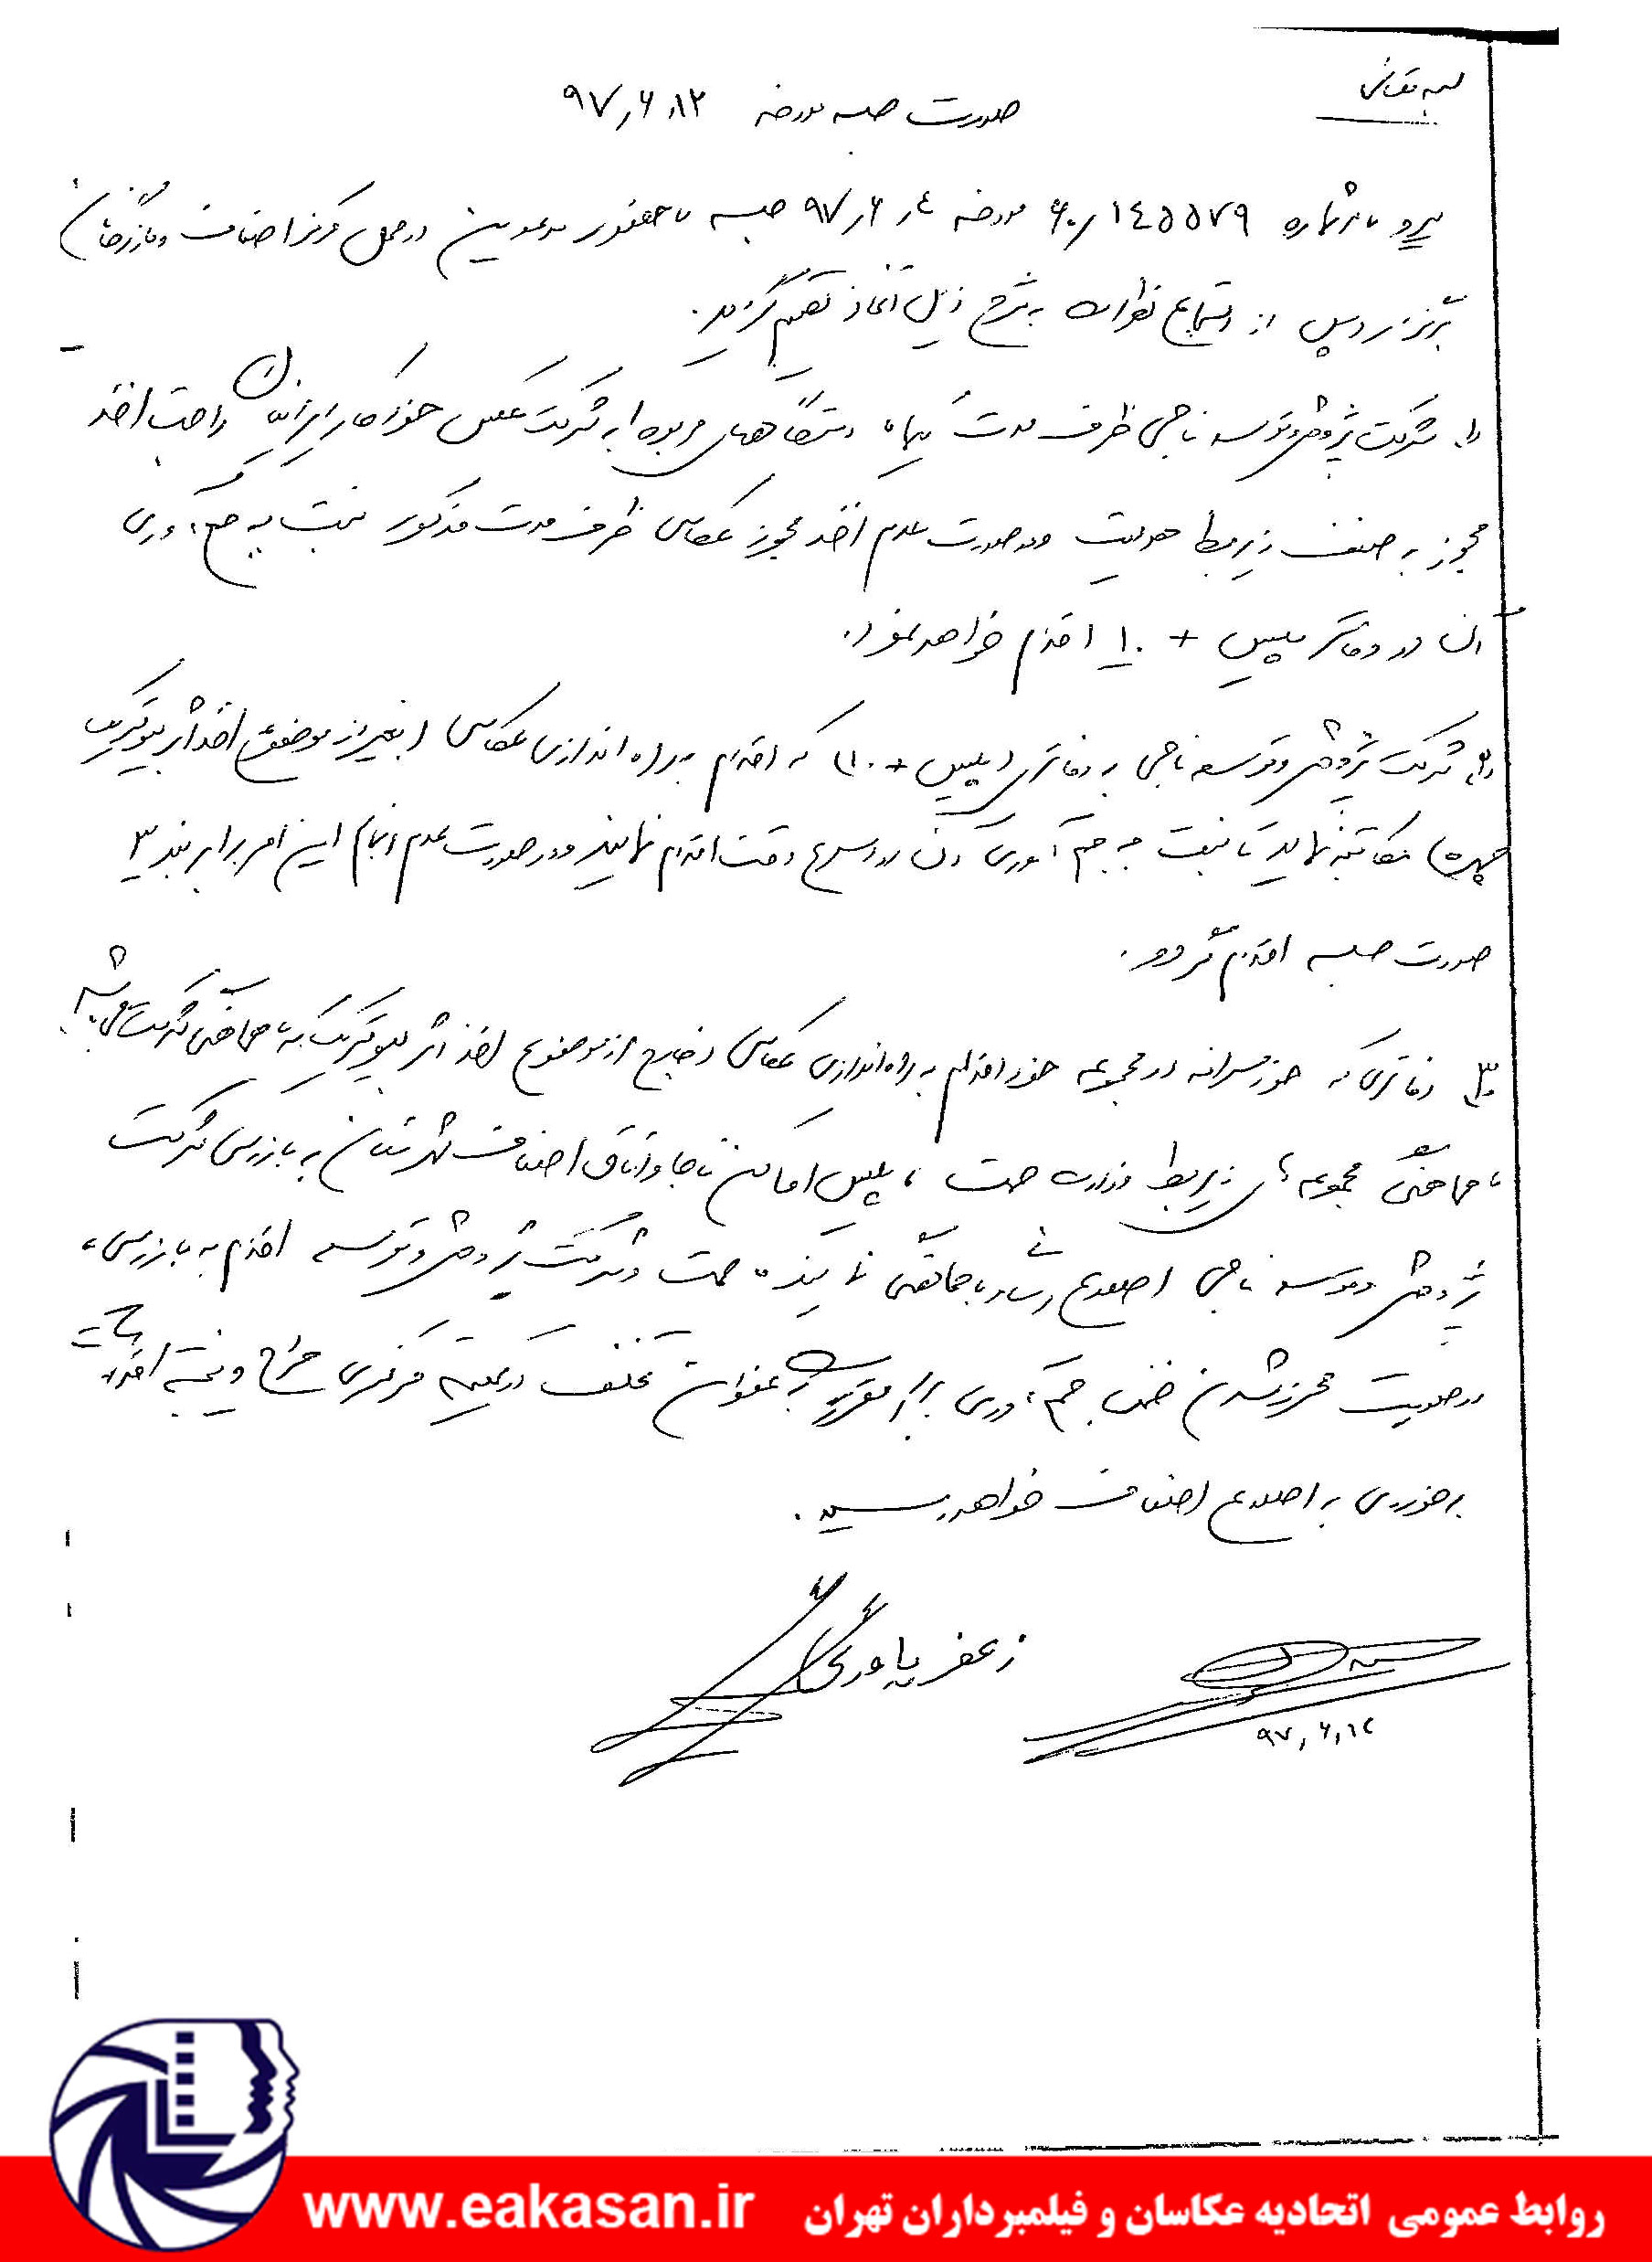 بسمه تعالی
صورت جلسه مورخه ۹۷٫۶٫۱۲
پیرو نامه شماره ۶۰٫۱۴۵۵۷۹ مورخه ۹۷٫۶٫۴ جلسه با حضور مدعوین در محل مرکز اصناف و بازرگانان
برگزار و پس از استماع نظرات به شرح ذیل اتخاذ تصمیم گردید.
۱. شرکت پژوهش و توسعه ناجی ظرف مدت یکماه دستگاههای مربوط به شرکت عکس خودکار ایرانیان را جهت اخذ
مجوز به صنف ذیربط هدایت و در صورت عدم اخذ مجوز عکاسی ظرف مدت مذکور نسبت به جمع آوری
آن در دفاتر پلیس + ۱۰ اقدام خواهد نمود.
۲. شرکت پژوهش و توسعه ناجی به دفاتر پلیس + ۱۰ که اقدام به راه اندازی عکاسی (بغیر از موضوع اخذ اثر بیومتریک
چهره) مکاتبه نماید تا نسبت به جمع آوری آن در اسرع وقت اقدام نمایند و در صورت عدم انجام این امر برابر بند ۳
صورت جلسه اقدام گردد.
۳. دفاتری که خودسرانه در مجموعه خود اقدام به راه اندازی عکاسی خارج از موضوع اخذ اثر بیومتریک که با هماهنگی شرکت می باشد
با هماهنگی مجموعه های ذیربط وزارت صمت ، پلیس اماکن ناجا و اتاق اصناف شهرستان به بازرسی شرکت
پژوهش و توسعه ناجی اطلاع رسانی با هماهنگی نماینده صمت و شرکت پژوهش و توسعه اقدام به بازرسی،
در صورت محرز شدن ضمن جمع آوری برابر مقررات به عنوان تخلف در کمیته مرکزی طرح و نتیجه اقدامات
برخوردی به اطلاع اصناف خواهد رسید.
زعفر یاوری
۹۷٫۶٫۱۲
www.eakasan.ir روابط عمومی اتحادیه عکاسان و فیلمبرداران تهران